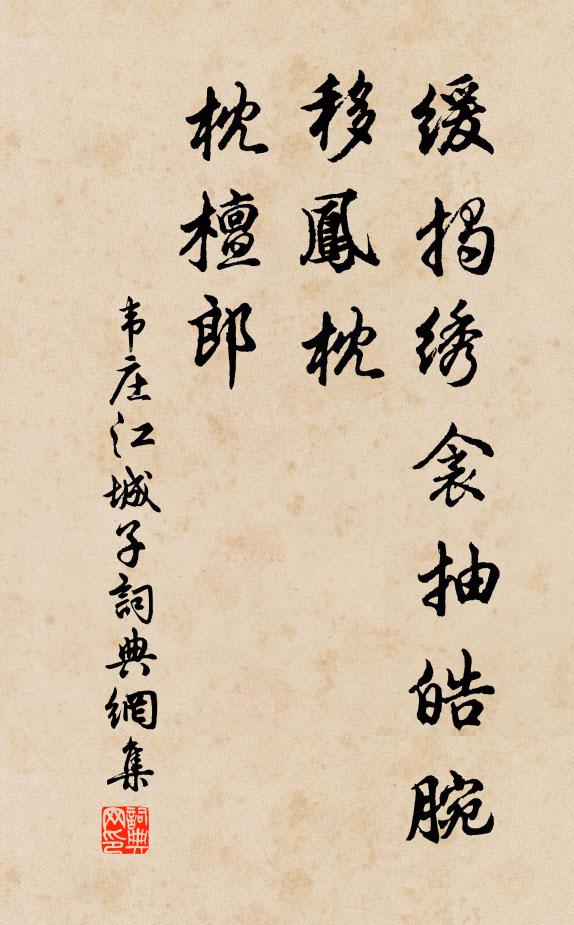 缓揭绣衾抽皓腕
移鳳枕
枕檀郎
韦庄江城子詞典網集
詞典网印